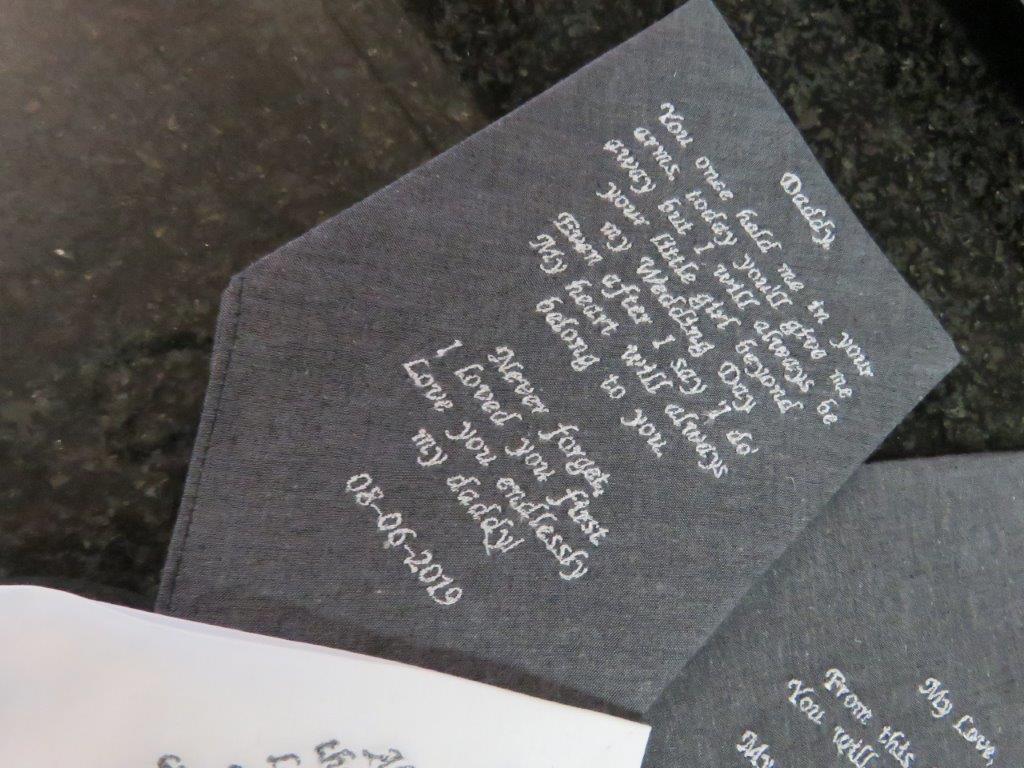 Daddy,
You once held me in your
arms, today you'll give me
away but I will always be
your little girl beyond
my Wedding Day
Even after I say I do
My heart will always
belong to you.
Never forget,
I loved you first
Love you endlessly
my daddy
08-06-2019
My Love,
From this
You will
My